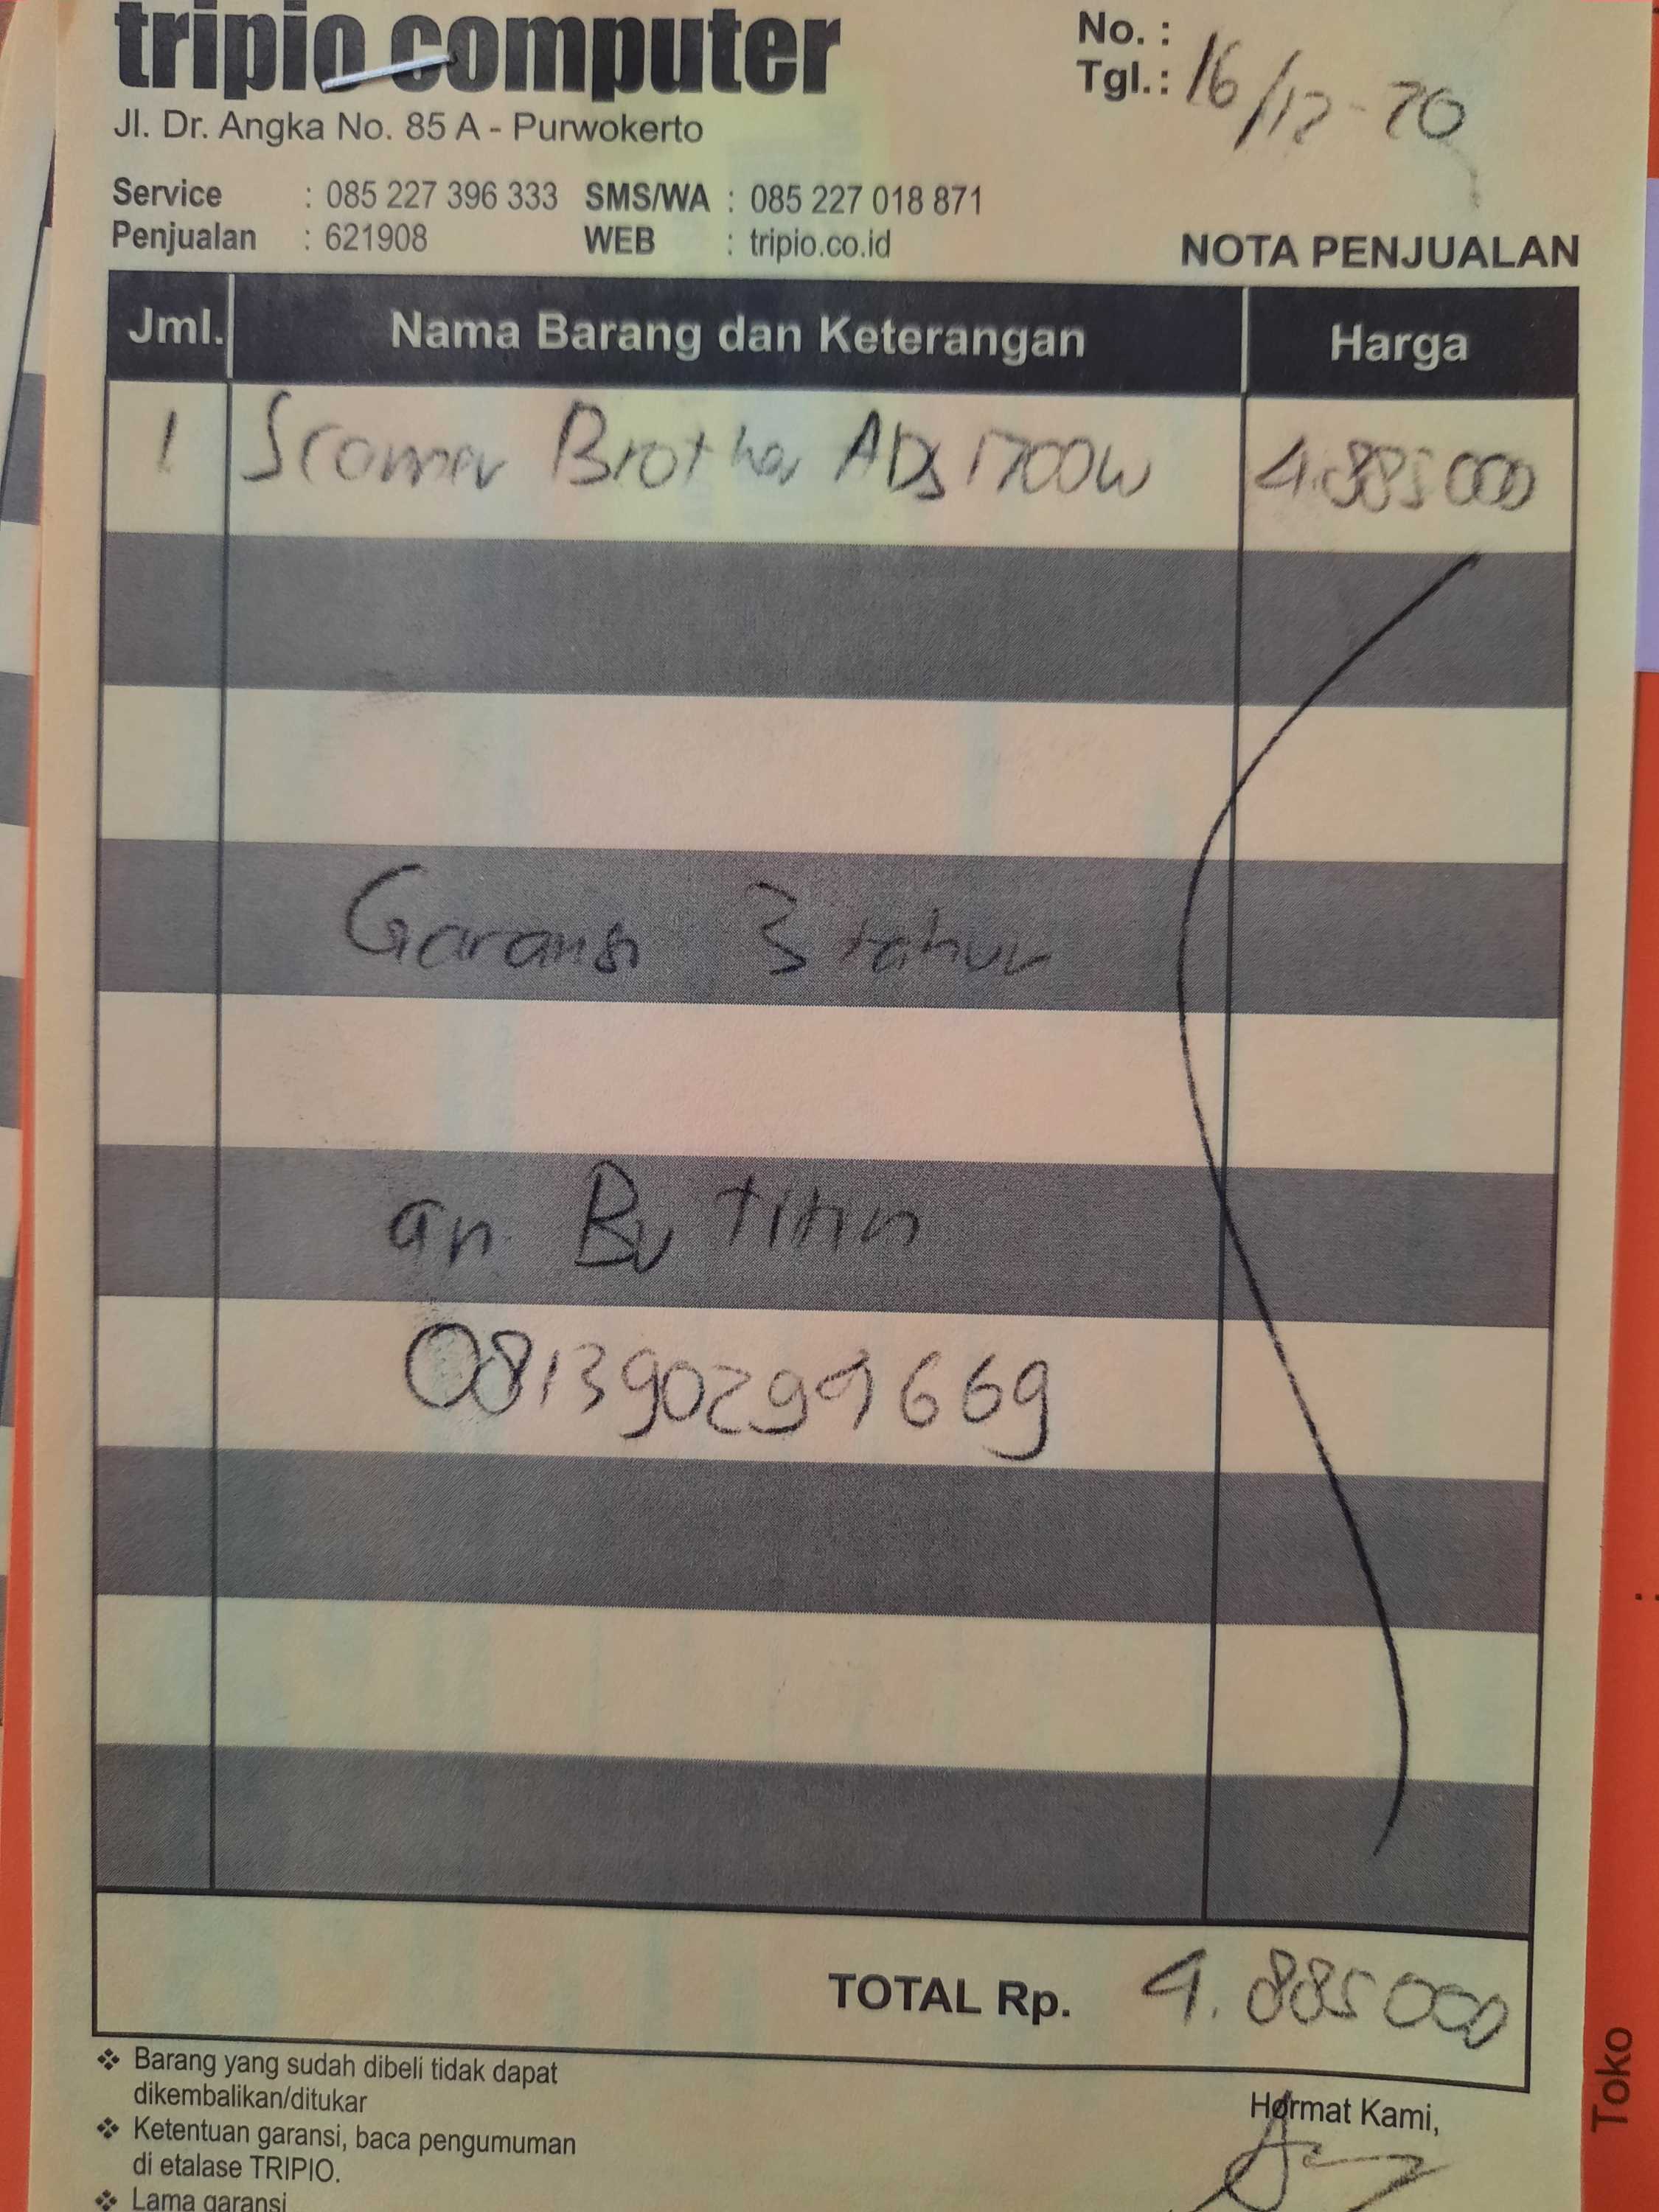 tripio computer
Jl. Dr. Angka No. 85 A - Purwokerto
No. :
Tgl. : 16/12-20
Service : 085 227 396 333 SMS/WA : 085 227 018 871
Penjualan : 621908 WEB : tripio.co.id
NOTA PENJUALAN
Jml. Nama Barang dan Keterangan Harga
1 Scanner Brother ADS 1700W 4.885000
Garansi 3 tahun
an Bu Titin
081390299669
TOTAL Rp. 4.885000
❖ Barang yang sudah dibeli tidak dapat
dikembalikan/ditukar
❖ Ketentuan garansi, baca pengumuman
di etalase TRIPIO.
❖ Lama garansi
Hormat Kami,
Toko